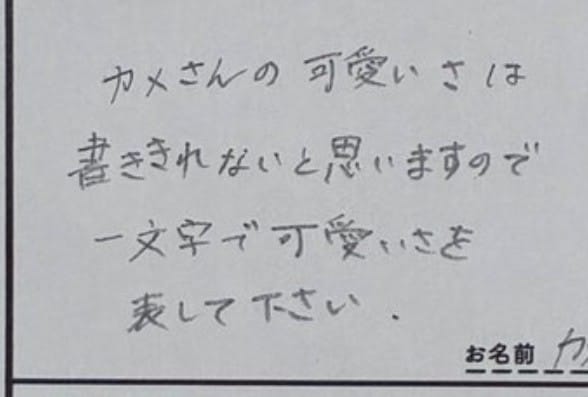 カメさんの可愛いさは
書ききれないと思いますので
一文字で可愛いさを
表して下さい.
お名前 カ